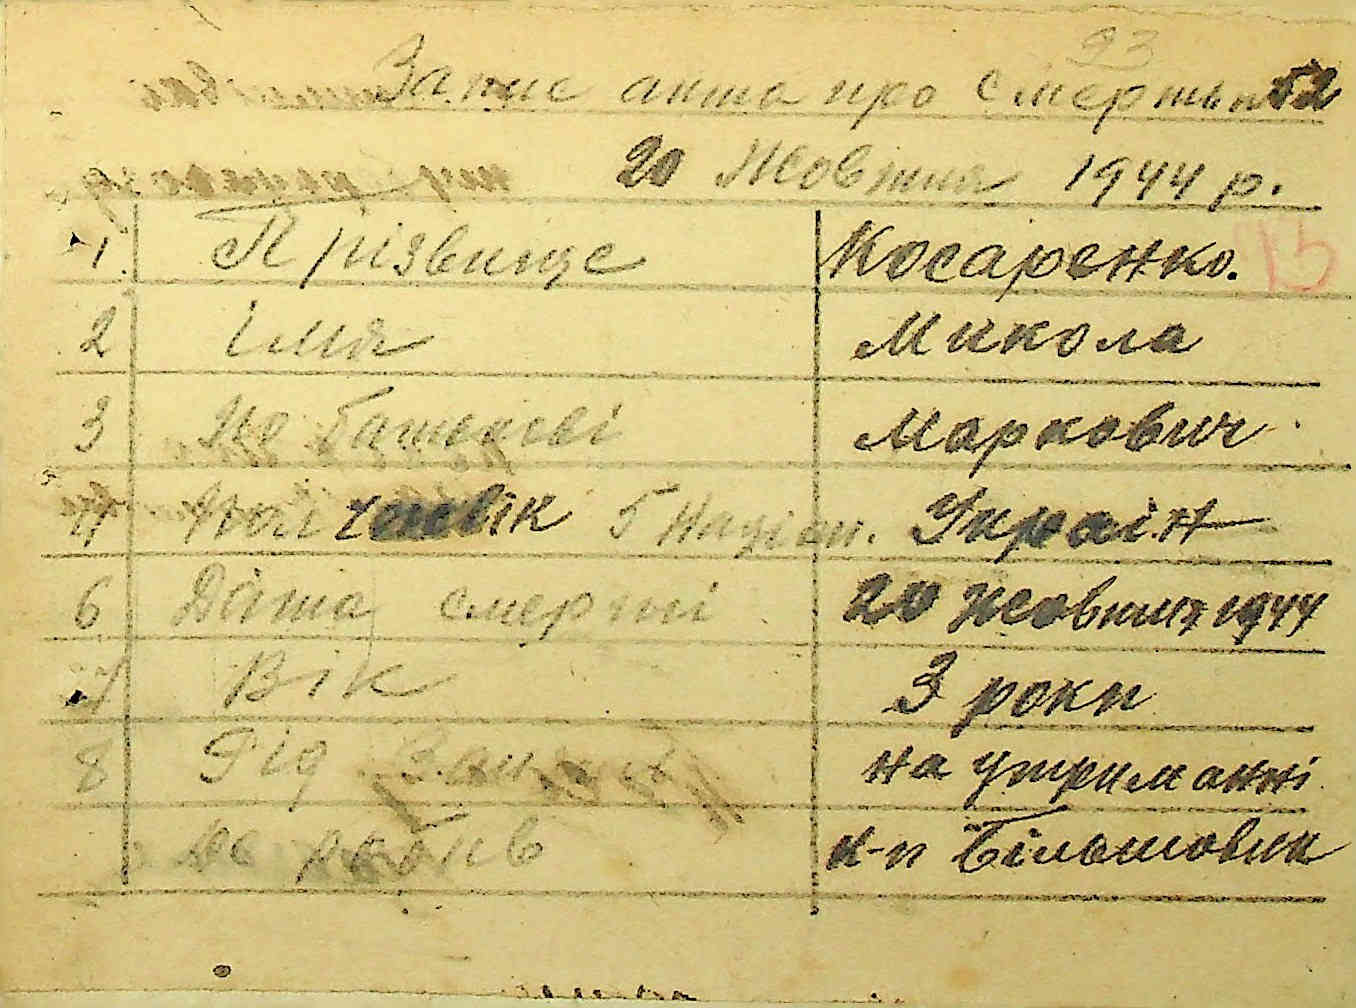 23
Запис акта про смерть № 52
20 Жовтня 1944 р.
1 Прізвище Косаренко.
2 імя Микола
3 По батькові Маркович
4 Пол чоловік 5 Націон. Україн
6 Дата смерті 20 жовтня 1944
7 Вік 3 роки
8 Рід Занят на утриманні
де робив к-п Більшовик